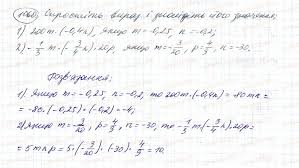 1060. Спростіть вираз і знайдіть його значення:
1) 200m·(-0,4n), якщо m=-0,25, n=-0,2;
2) -1/3 m·(-3/4 n)·20p, якщо m=-3/20, p=4/3, n=-30.
Розв'язання:
1. Якщо m=-0,25, n=-0,2, то 200m·(-0,4n)=-80mn=
=-80·(-0,25)·(-0,2)=-4;
2) якщо m=-3/20, p=4/3, n=-30, то -1/3 m·(-3/4 n)·20p=
=5mnp=5·(-3/20)·(-30)·4/3=